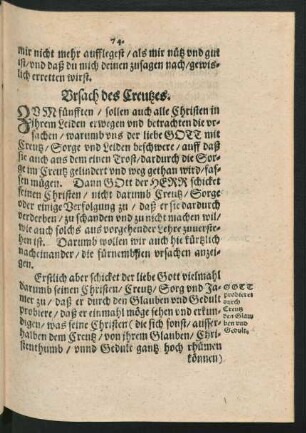 74.
mir nicht mehr aufflegest/ als mir nütz vnd gut
ist/ vnd daß du mich deinen zusagen nach/ gewis-
lich erretten wirst.
Vrsach des Creutzes.
ZVM fünfften/ sollen auch alle Christen in
jhrem Leiden erwegen vnd betrachten die vr-
sachen/ warumb vns der liebe GOTT mit
Creutz/ Sorge vnd Leiden beschwert/ auff daß
sie auch aus dem einen Trost/ dardurch die Sor-
ge im Creutz gelindert vnd weg gethan wird/ fas-
sen mügen. Dann GOtt der HERR schicket
seinen Christen/ nicht darumb Creutz/ Sorge
oder einige Verfolgung zu/ daß er sie dardurch
verderben/ zu schanden vnd zu nicht machen wil/
wie auch solchs aus vorgehender Lehre zuuerste-
hen ist. Darumb wollen wir auch hie kürtzlich
nacheinander/ die fürnembsten vrsachen anzei-
gen.
Erstlich aber schicket der liebe Gott vielmahl
darumb seinen Christen/ Creutz/ Sorg vnd Ja-
mer zu/ daß er durch den Glauben vnd Gedult
probiere/ daß er einmahl möge sehen vnd erkun-
digen/ was seine Christen (die sich sonst/ ausser-
halben dem Creutz/ von jhrem Glauben/ Chri-
stenthumb/ vnnd Gedult gantz hoch rhümen
können)
GOTT
probieret
durch
Creutz
den Glau
ben vnd
Gedult.